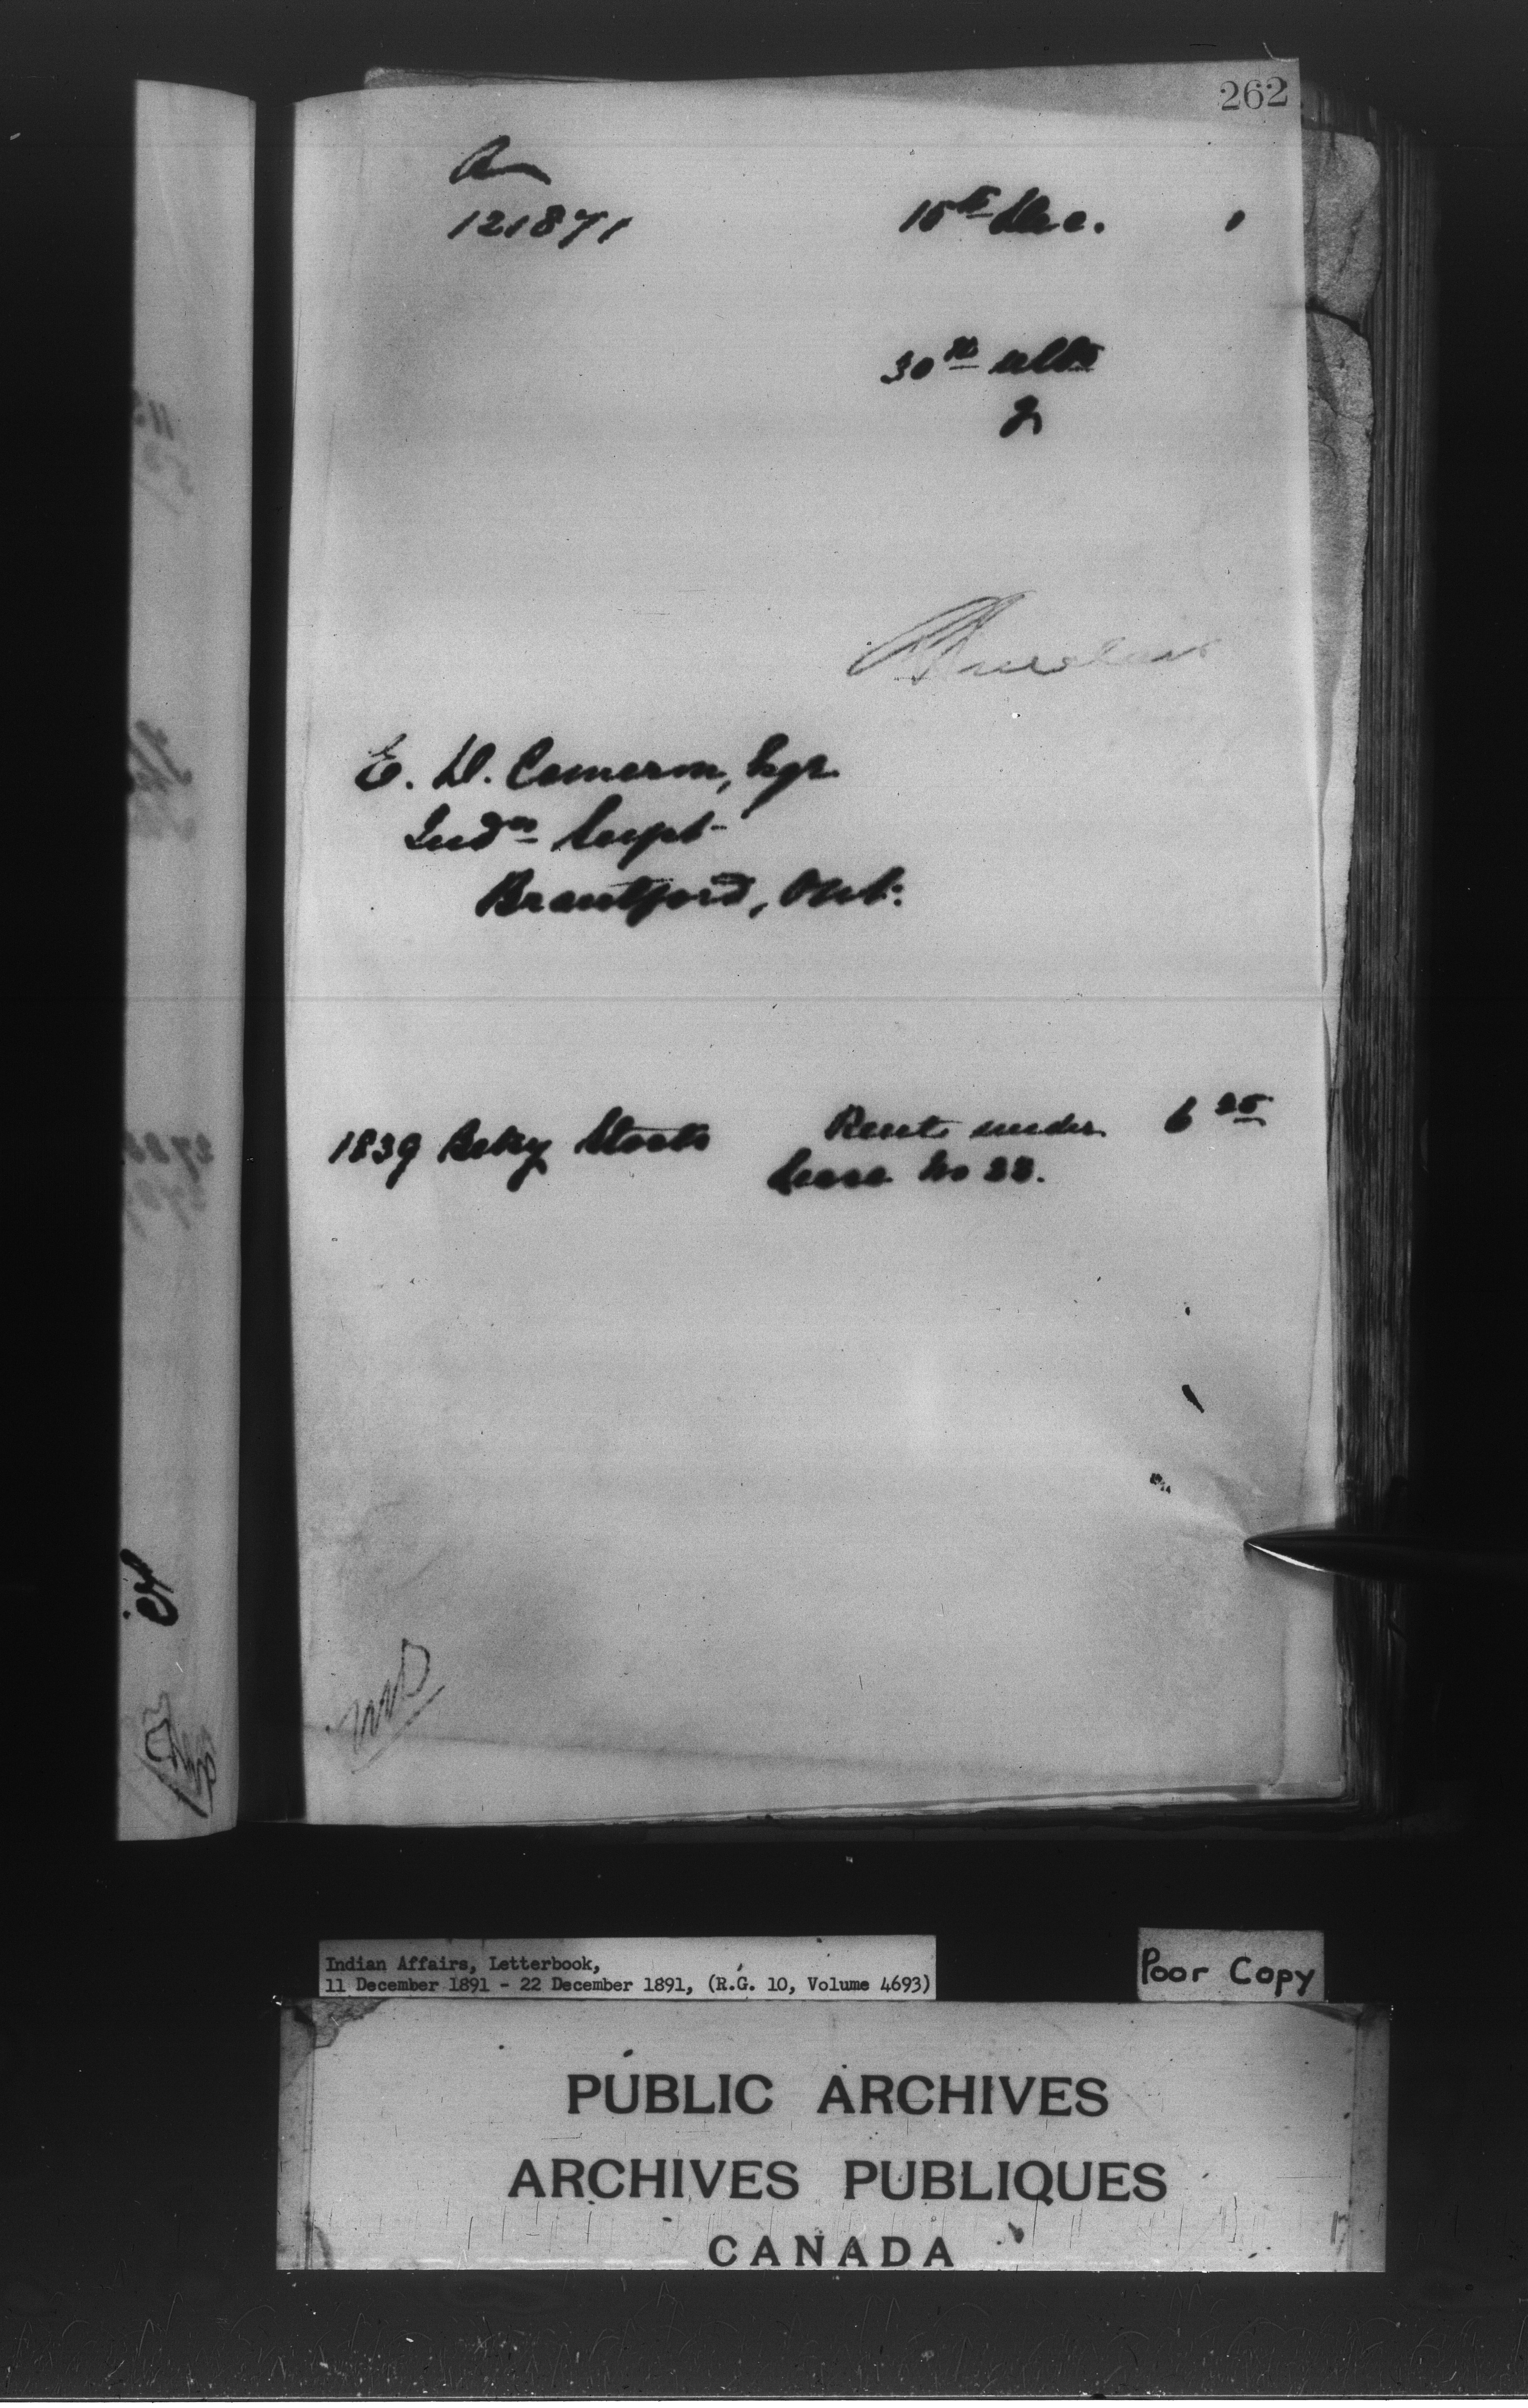 262
A
121871
15th Dec. 1
30th ulto
2
E. D. Cameron, Esqr.
Indn Supt
Brantford, Ont.
1839 Betsy Staats Rent under 6 25
lease No 22.
Indian Affairs, Letterbook,
11 December 1891 - 22 December 1891, (R.G. 10, Volume 4693)
Poor Copy
PUBLIC ARCHIVES
ARCHIVES PUBLIQUES
CANADA